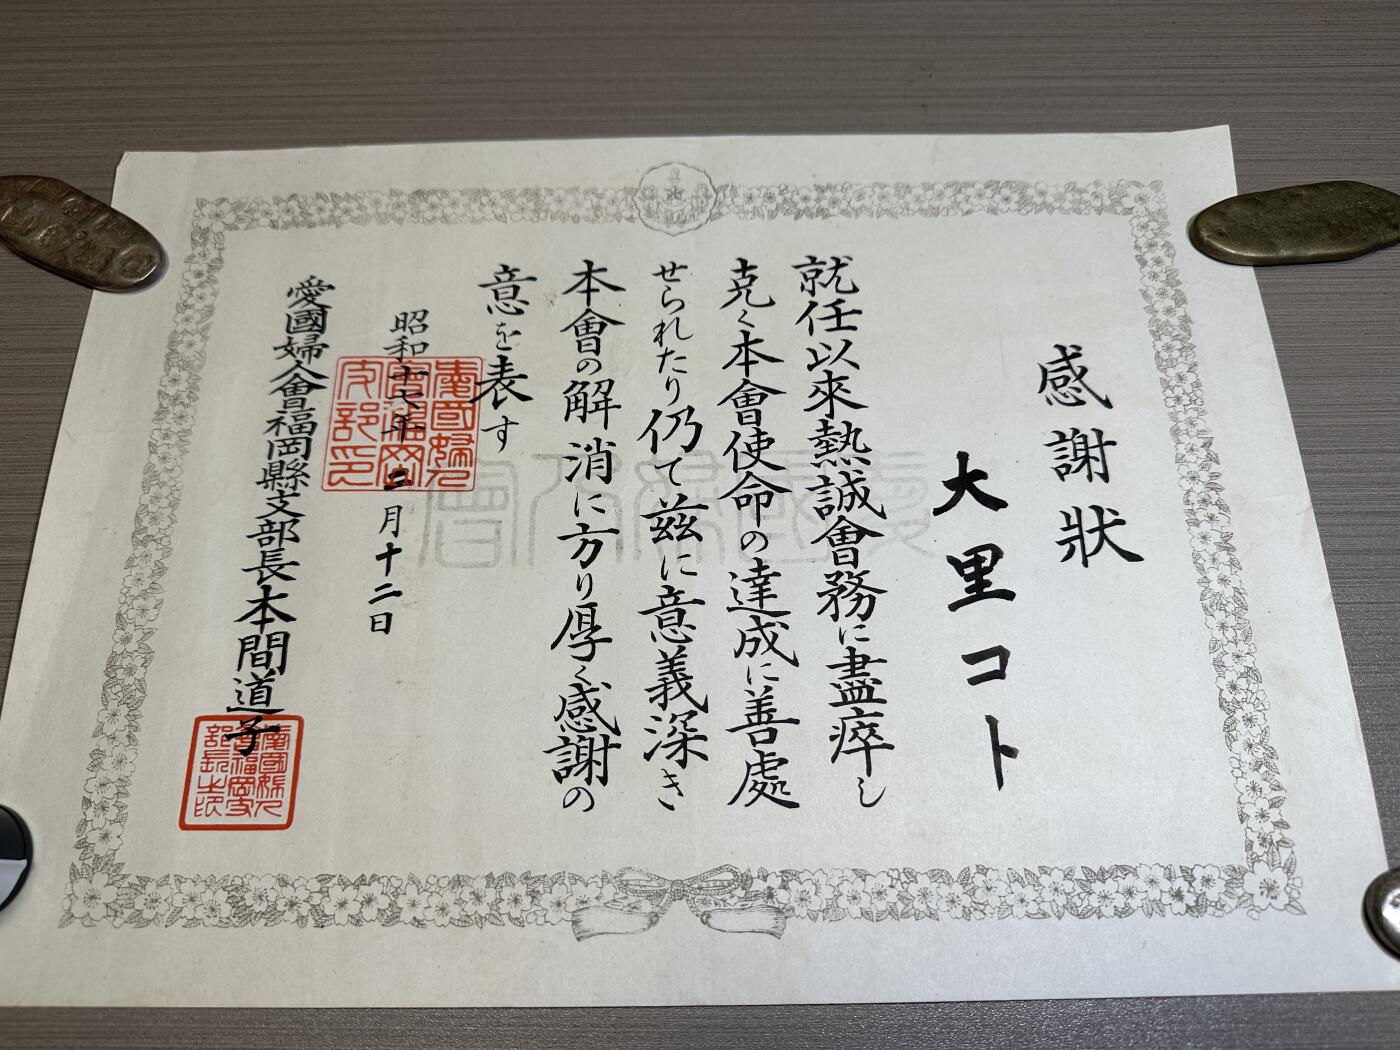 感謝狀
大里コト
就任以來熱誠會務に盡瘁し
克く本會使命の達成に善處
せられたり仍て茲に意義深き
本會の解消に方り厚く感謝の
意を表す
昭和十七年二月十二日
愛國婦人會福岡縣支部長本間道子
愛國婦人會福岡支部印
愛國婦人會福岡支部長之印
愛國婦人會